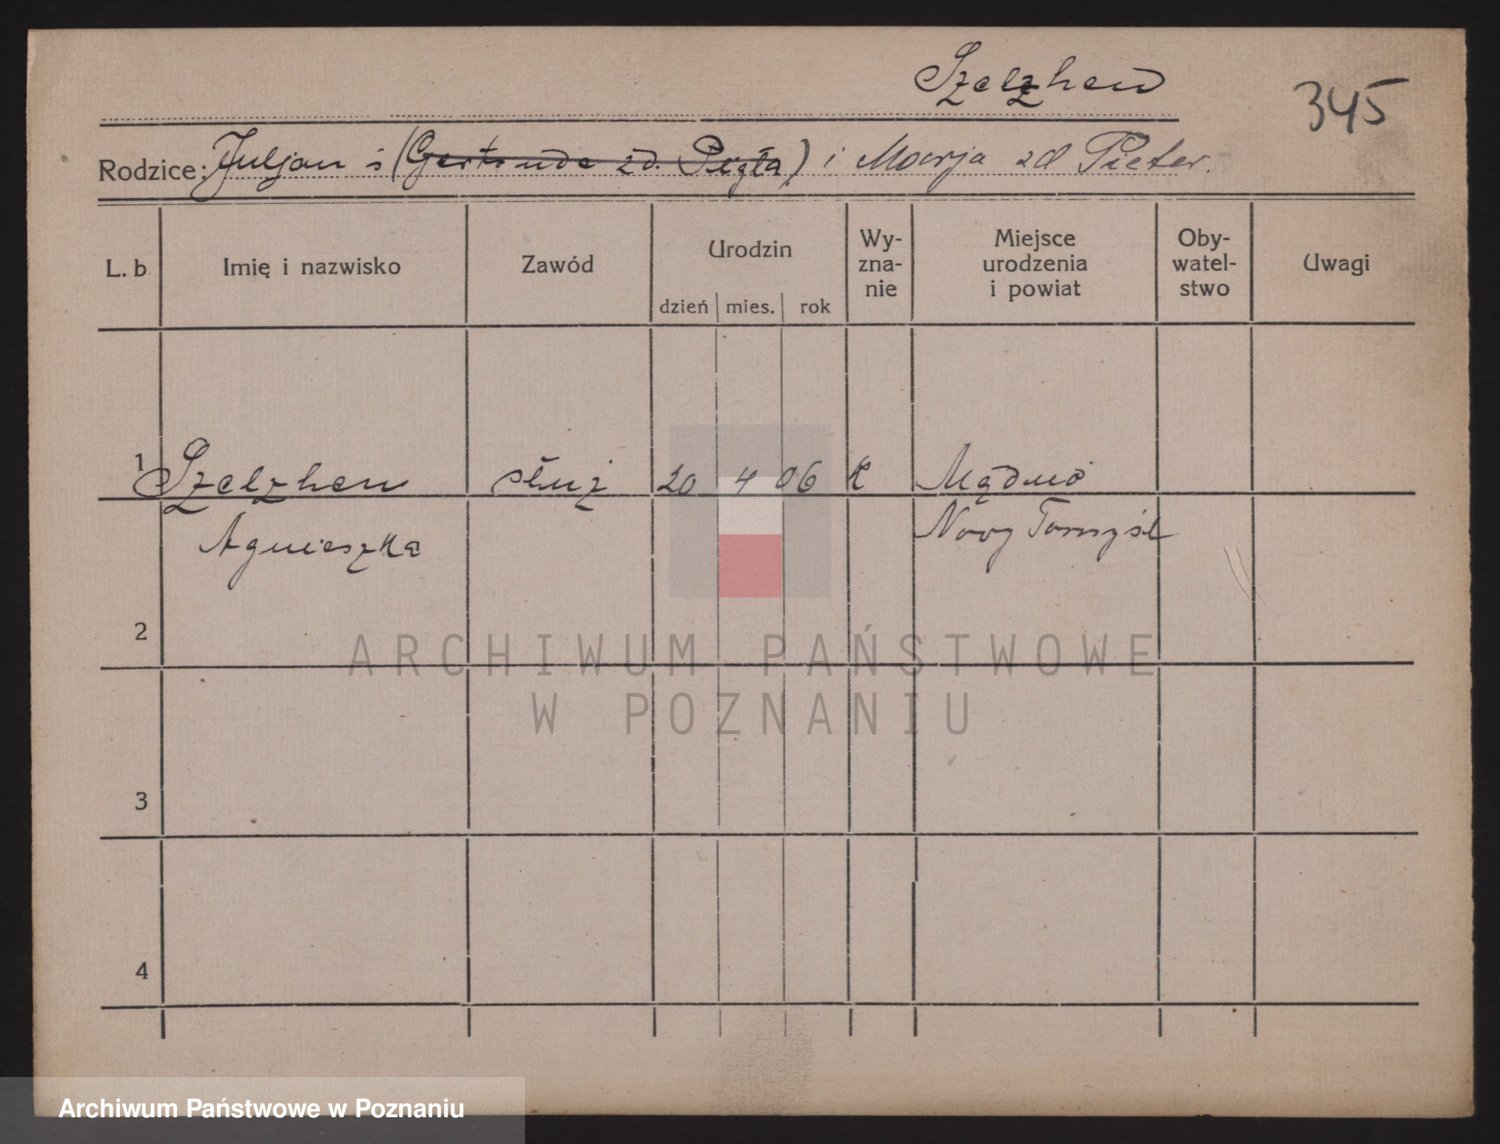 Szelzhen
345
Rodzice: Juljan i (Gertruda zd. Pigła) i Marja zd Pieter.
L. b Imię i nazwisko Zawód Urodzin dzień mies. rok Wy-zna-nie Miejsce urodzenia i powiat Oby-watel-stwo Uwagi
1 Szelzhen służ 20 4 06 K
Agnieszka Nowy Tomyśl
2
3
4
ARCHIWUM PAŃSTWOWE
W POZNANIU
Archiwum Państwowe w Poznaniu